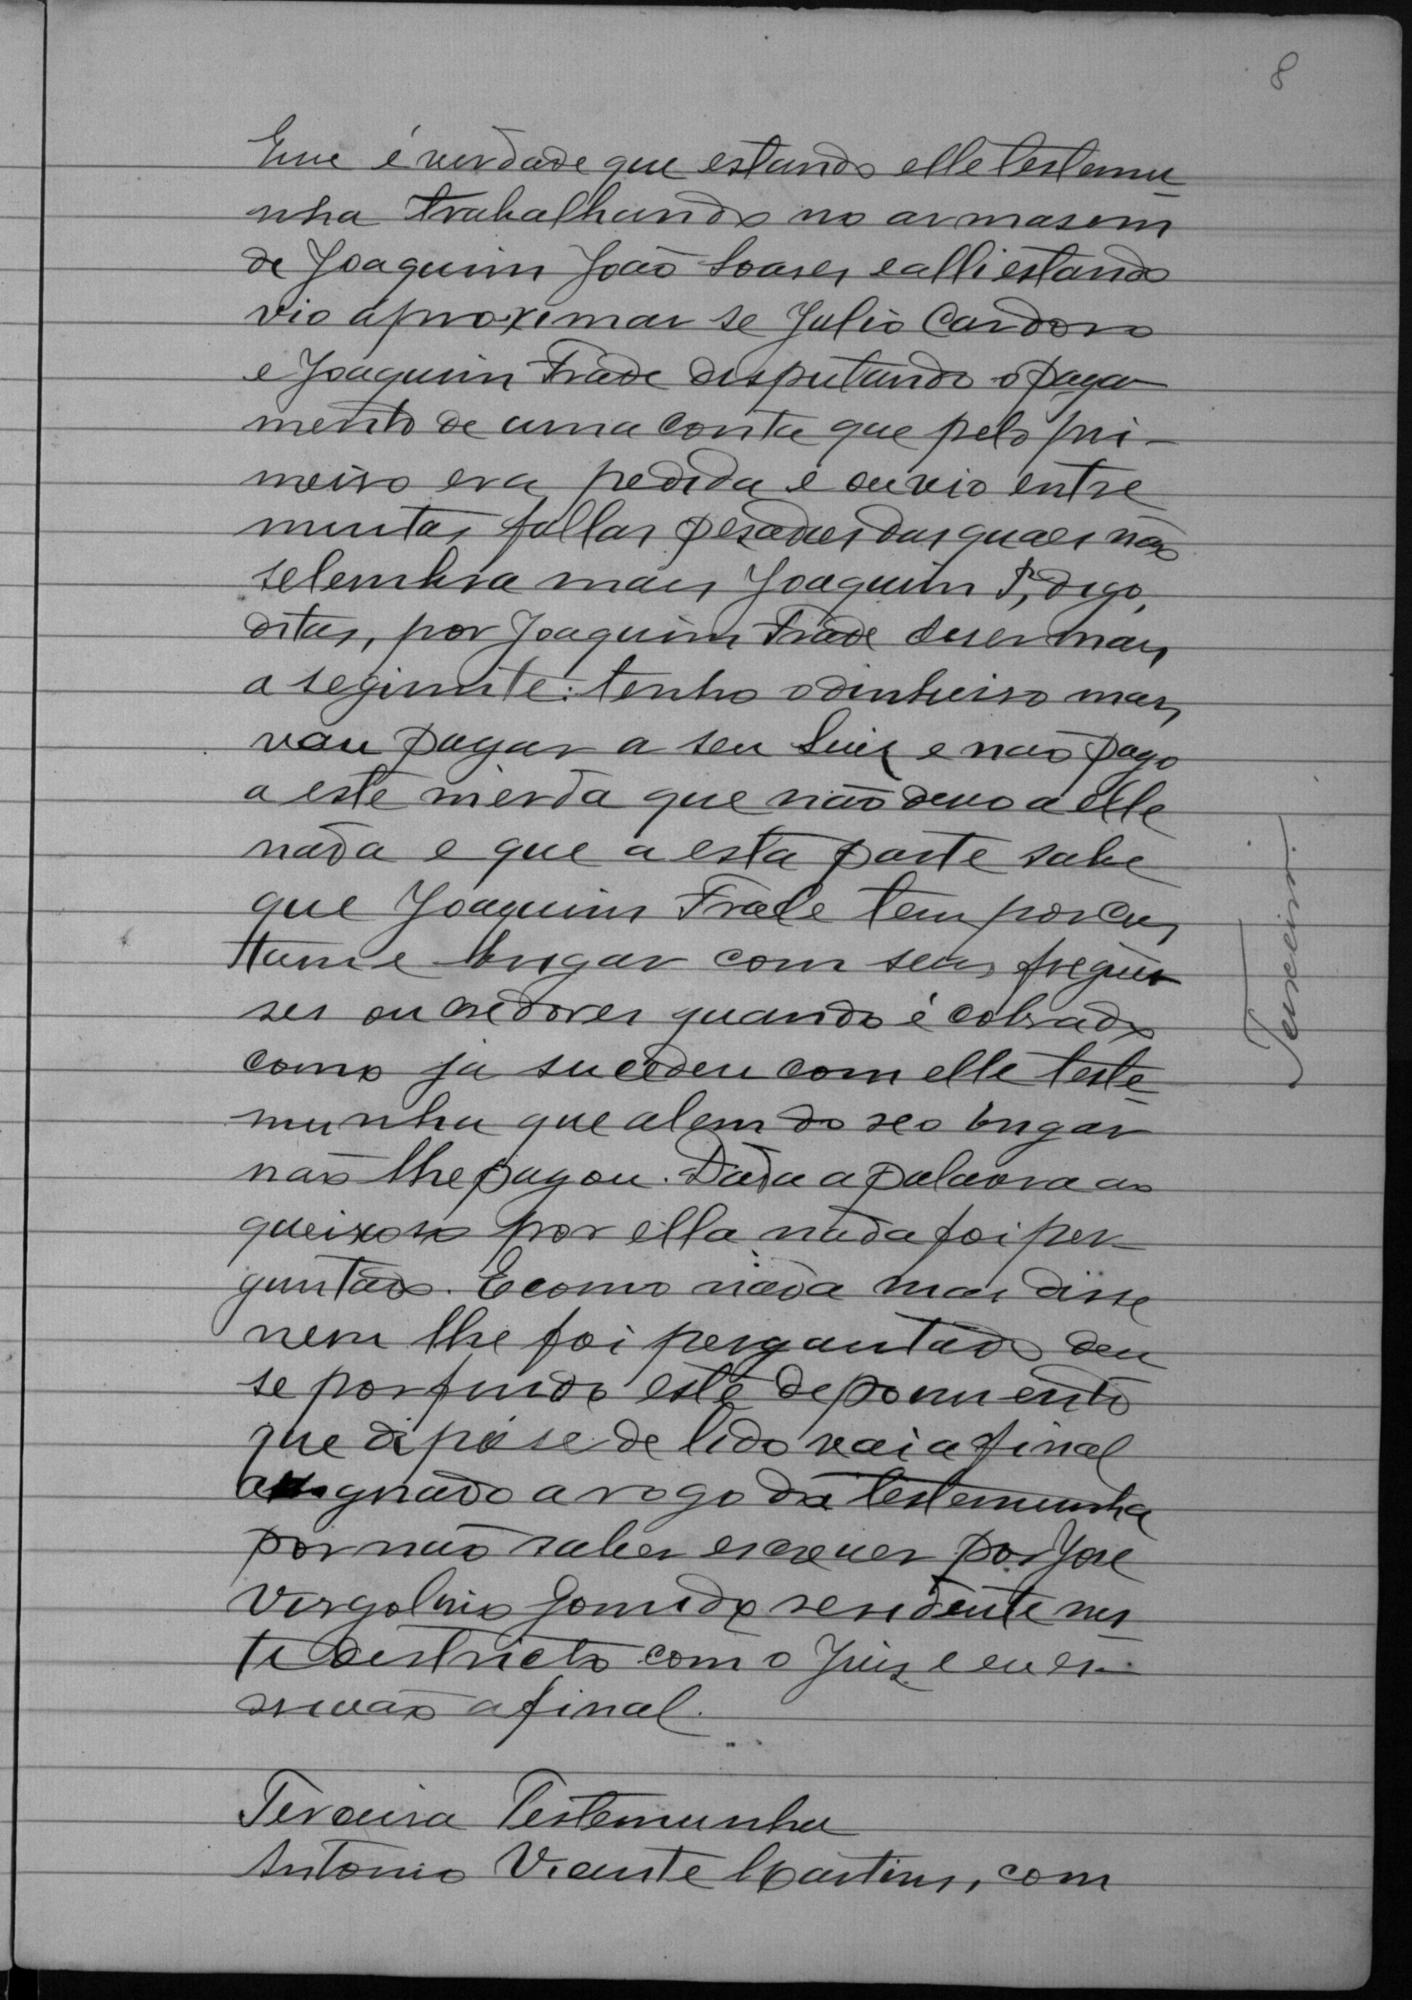 8
Que é verdade que estando elle testemu-
nha trabalhando no armasem
de Joaquim João Soares e alli estando
vio aproximar se Julio Cardoso
e Joaquim Frade desputando o paga
mento de uma conta que pelo pri-
meiro era pedida e ouvio entre
muitas fallas pesadas das quaes não
se lembra mais Joaquim F, digo,
ditas, por Joaquim Frade diser mais
a seguinte: tenho o dinheiro mas
vou pagar a seu Luiz e não pago
a este merda que não devo a elle
nada e que a esta parte sabe
que Joaquim Frade tem por cus
tume brigar com seus fregue
ses ou credores quando é cobrado
como ja sucedeu com elle teste-
munha que alem do seo brigar
não lhe pagou. Dada a palavra ao
queixoso por ella nada foi per-
guntado. E como nada mais disse
nem lhe foi perguntado deu
se por findo este depoimento
que dipois de lido vai a final
assignado a rogo da testemunha
por não saber escrever por José
Vergolino Gomide residente nes
te districto com o Juis e eu es-
crivão a final.
Terceira Testemunha
Antonio Vicente Martins, com